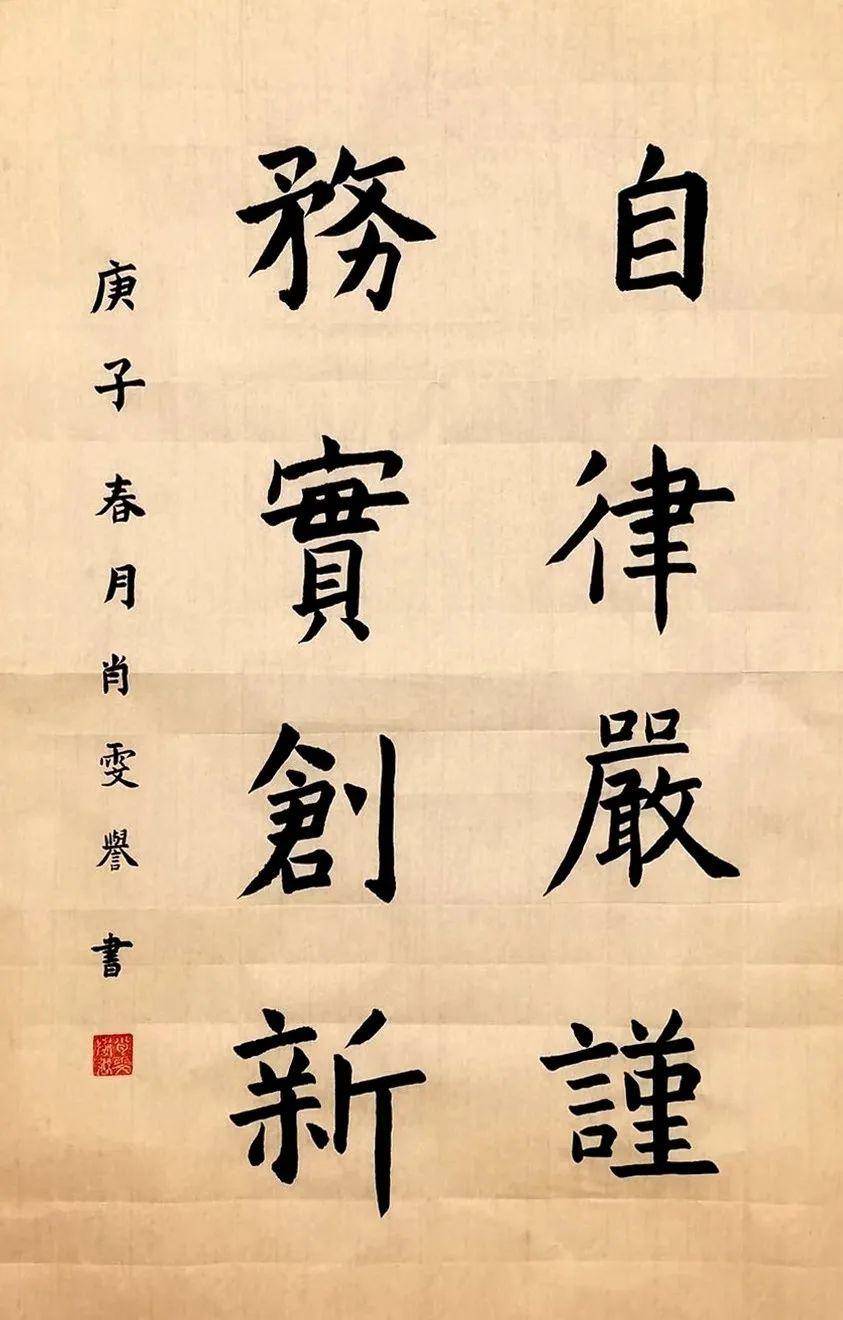 自律嚴謹
務實創新
庚子春月肖雯譽書